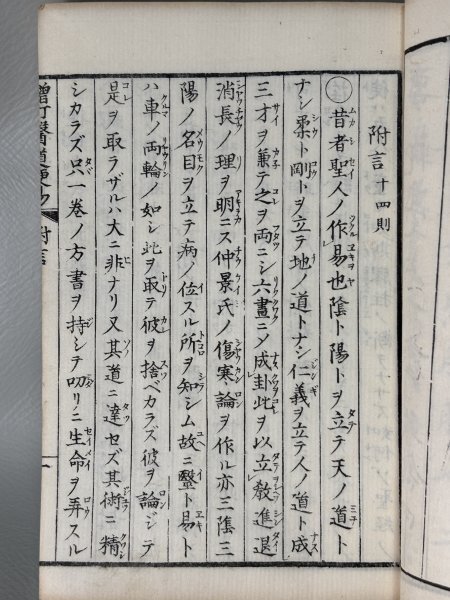 附言十四則
○昔者聖人ノ作易也陰ト陽トヲ立テ天ノ道ト
ナシ柔ト剛トヲ立テ地ノ道トナシ仁義ヲ立テ人ノ道ト成
三才ヲ兼テ之ヲ両ニシ六畫ニ〆成卦此ヲ以立教進退
消長ノ理ヲ明ニス仲景氏ノ傷寒論ヲ作ル亦三陰三
陽ノ名目ヲ立テ病ノ位スル所ヲ知シム故ニ毉ト易ト
ハ車ノ両輪ノ如シ此ヲ取テ彼ヲ捨ベカラズ彼ヲ論ジテ
是ヲ取ラザルハ大ニ非ナリ又其道ニ達セズ其術ニ精
シカラズ只一巻ノ方書ヲ持シテ叨リニ生命ヲ弄スル
附言